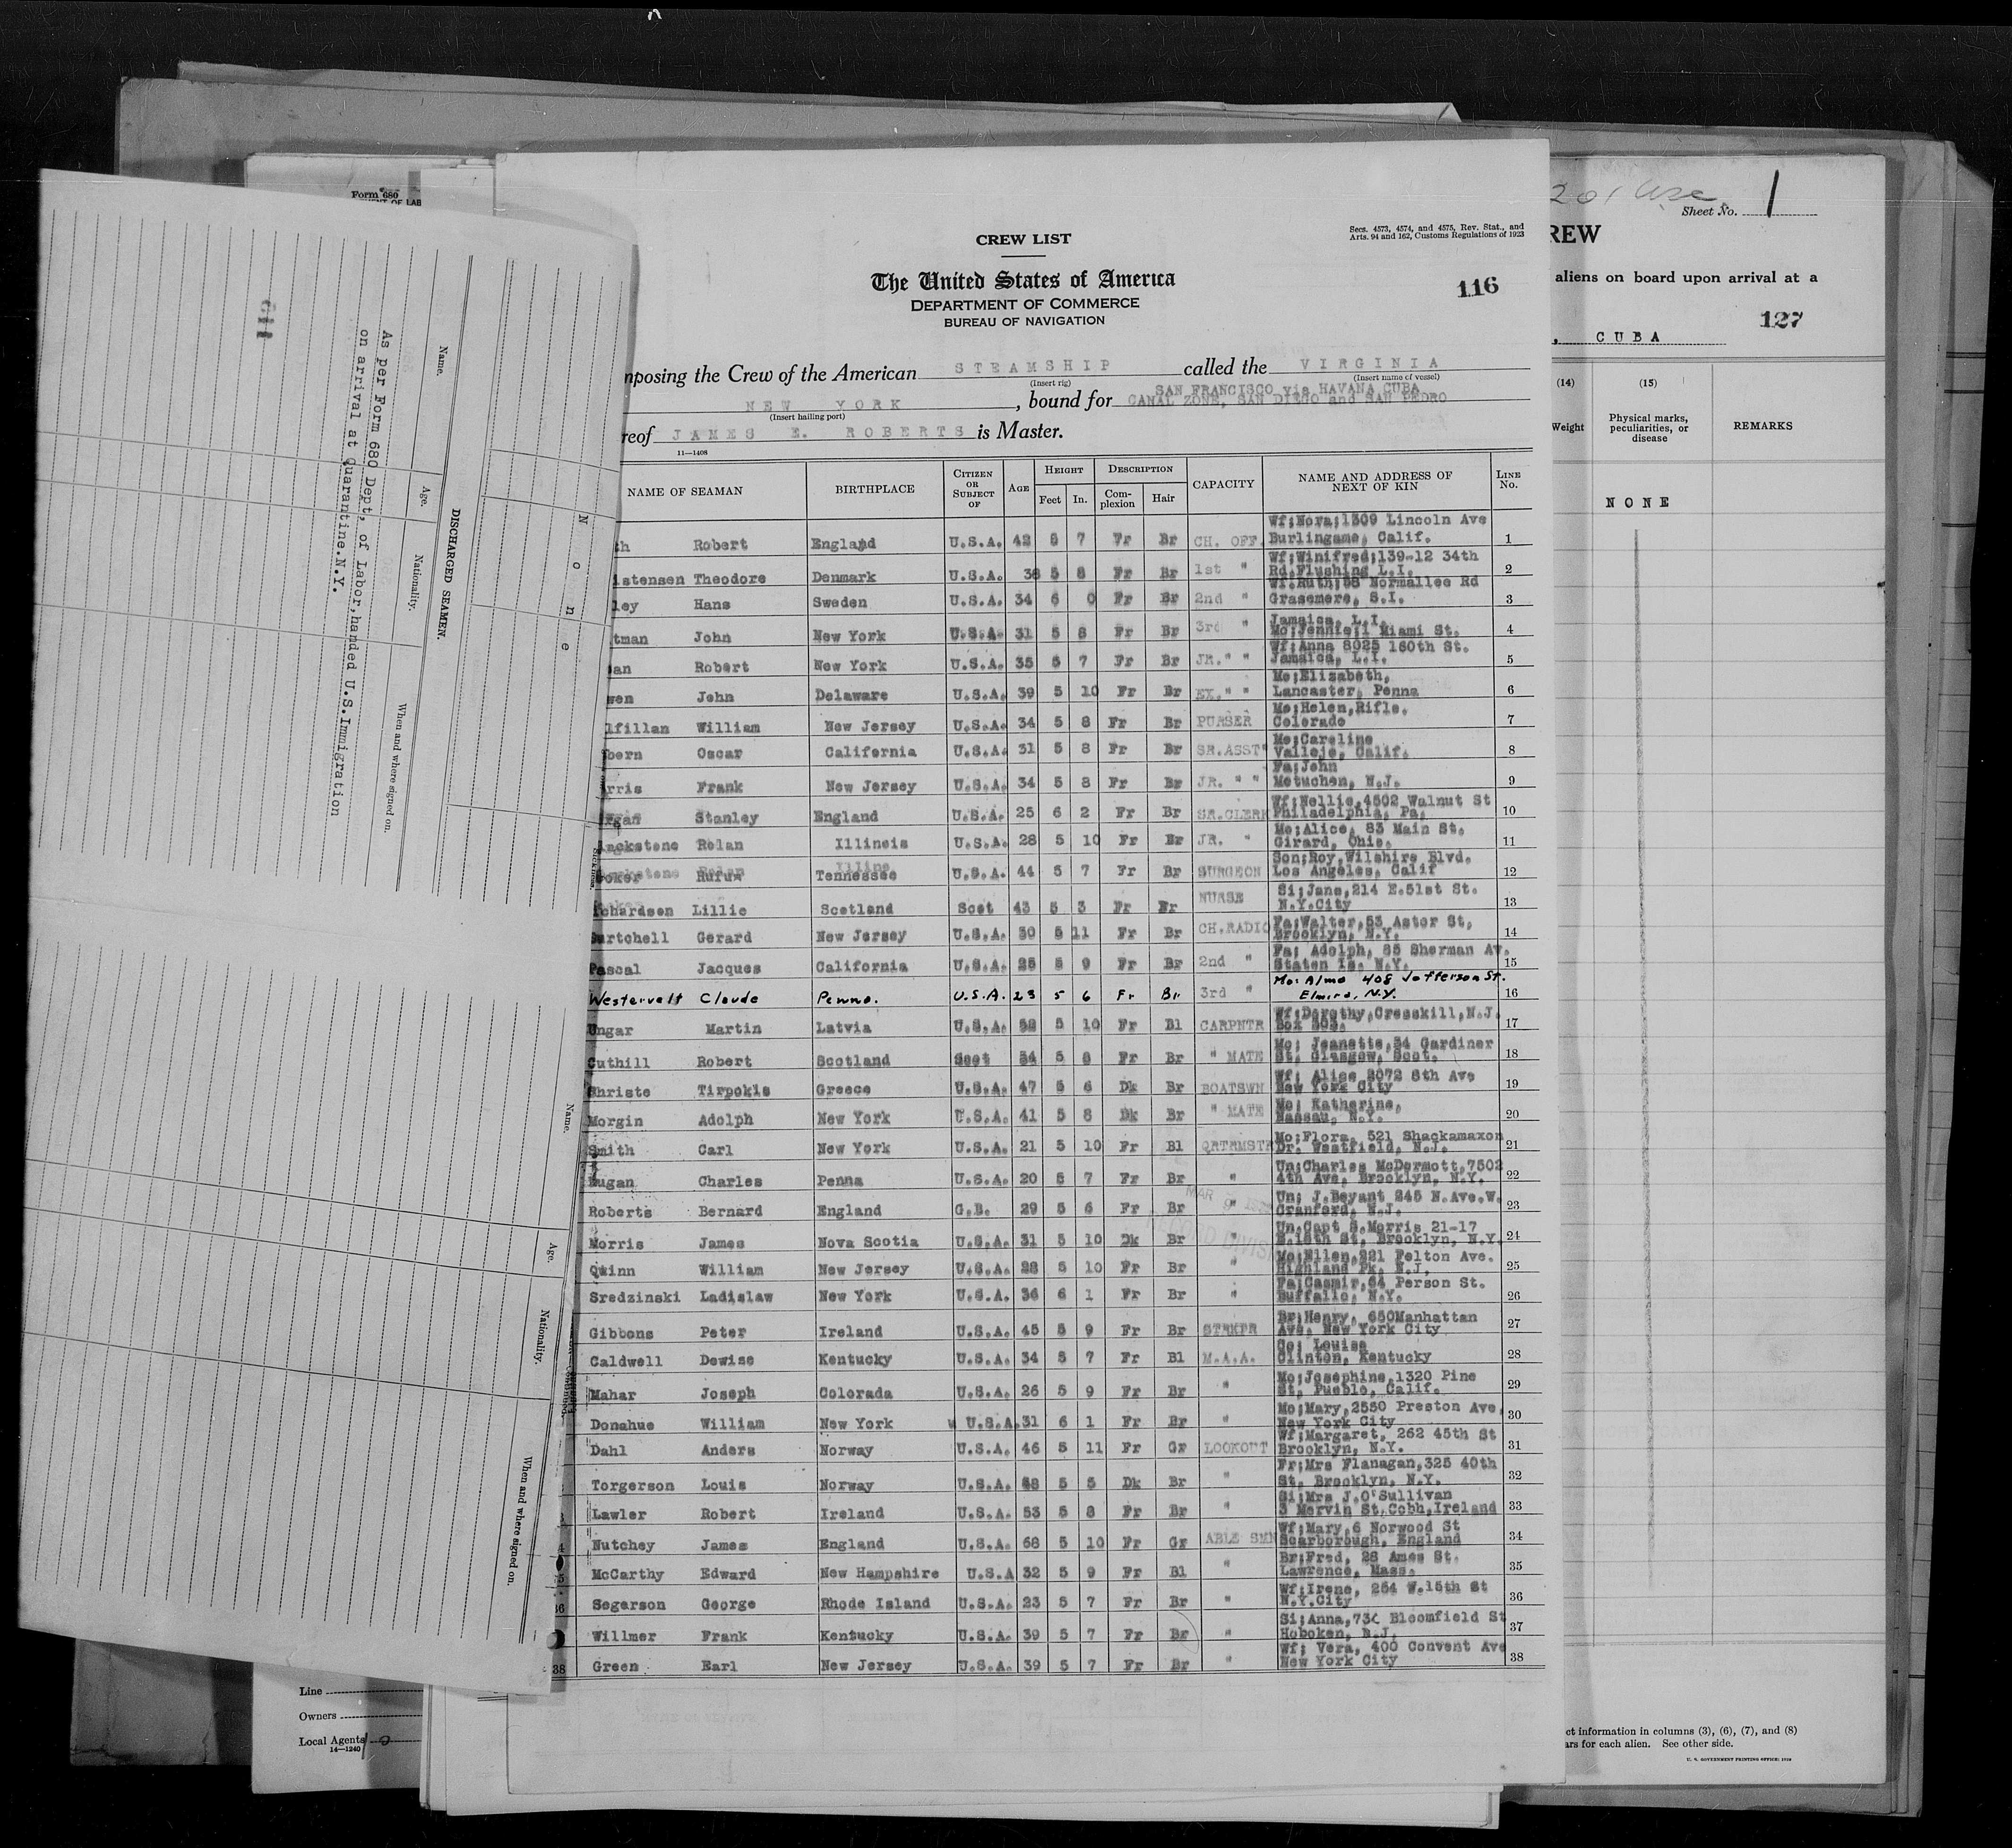 Form 680
2 0 1 use
Sheet No. 1
CREW LIST
Secs. 4573, 4574, and 4575, Rev. Stat., and
Arts. 94 and 162, Customs Regulations of 1923
REW
The United States of America
DEPARTMENT OF COMMERCE
BUREAU OF NAVIGATION
116
aliens on board upon arrival at a
127
, CUBA
mposing the Crew of the American STEAMSHIP called the VIRGINIA
(Insert rig) (Insert name of vessel)
NEW YORK, bound for SAN FRANCISCO via HAVANA CUBA
CANAL ZONE, SAN DIEGO and SAN PEDRO
(Insert hailing port)
reof JAMES E. ROBERTS is Master.
11—1408
NAME OF SEAMAN BIRTHPLACE CITIZEN OR SUBJECT OF AGE HEIGHT Feet In. DESCRIPTION Complexion Hair CAPACITY NAME AND ADDRESS OF NEXT OF KIN LINE No.
th Robert England U.S.A. 42 5 7 Fr Br CH. OFF. Wf;Nora;1309 Lincoln Ave Burlingame, Calif. 1
istensen Theodore Denmark U.S.A. 38 5 8 Fr Br 1st " Wf;Winifred;139-12 34th Rd,Flushing L.I. 2
ley Hans Sweden U.S.A. 34 6 0 Fr Br 2nd " Wf.Ruth;58 Normallee Rd Grasemere, S.I. 3
tman John New York U.S.A. 31 5 8 Fr Br 3rd " Jamaica, L.I. Mo;Jennie;1 Miami St. 4
an Robert New York U.S.A. 35 5 7 Fr Br JR." " Wf;Anna 8025 160th St. Jamaica, L.I. 5
wen John Delaware U.S.A. 39 5 10 Fr Br EX." " Mo;Elizabeth, Lancaster, Penna 6
lfillan William New Jersey U.S.A. 34 5 8 Fr Br PURSER Mo;Helen,Rifle, Colorado 7
bern Oscar California U.S.A. 31 5 8 Fr Br SR.ASST" Mo;Caroline Vallejo, Calif. 8
rris Frank New Jersey U.S.A. 34 5 8 Fr Br JR. " " Fa;John Metuchen, N.J. 9
rgan Stanley England U.S.A. 25 6 2 Fr Br SR.CLERK Wf;Nellie,4502 Walnut St Philadelphia, Pa. 10
ackstone Rolan Illinois U.S.A. 28 5 10 Fr Br JR. " Mo;Alice, 83 Main St. Girard, Ohio. 11
ooker Rufus Tennessee U.S.A. 44 5 7 Fr Br SURGEON Son;Roy,Wilshire Blvd. Los Angeles, Calif 12
ichardson Lillie Scotland Scot 43 5 3 Fr Br NURSE Si;Jane,214 E.51st St. N.Y.City 13
Burtchell Gerard New Jersey U.S.A. 30 5 11 Fr Br CH.RADIO Fa;Walter,53 Astor St, Brooklyn, N.Y. 14
Pascal Jacques California U.S.A. 25 5 9 Fr Br 2nd " Fa; Adolph, 85 Sherman Av. Staten Is. N.Y. 15
Westervelt Claude Penna. U.S.A. 23 5 6 Fr Br 3rd " Mo: Alma 408 Jefferson St. Elmira, N.Y. 16
Ungar Martin Latvia U.S.A. 5 10 Fr Bl CARPNTR Wf;Dorothy,Cresskill,N.J. Box 303. 17
Cuthill Robert Scotland Scot 34 5 8 Fr Br " MATE Mo; Jeanette,34 Gardiner St, Glasgow, Scot. 18
Christo Tirpokis Greece U.S.A. 47 5 6 Dk Br BOATSWN Wf; Alice 2072 8th Ave New York City 19
Morgin Adolph New York U.S.A. 41 5 8 Dk Br " MATE Mo; Katherine, Nassau, N.Y. 20
Smith Carl New York U.S.A. 21 5 10 Fr Bl QRTRMSTR Mo;Flora, 521 Shackamaxon Dr. Westfield, N.J. 21
Dugan Charles Penna U.S.A. 20 5 7 Fr Br " Un;Charles McDermott,7502 4th Ave, Brooklyn, N.Y. 22
Roberts Bernard England G.B. 29 5 6 Fr Br " Un; J.Beyant 245 N.Ave.W. Cranford, N.J. 23
Morris James Nova Scotia U.S.A. 31 5 10 Dk Br " Un.Capt S.Morris 21-17 E.15th St, Brooklyn, N.Y. 24
Quinn William New Jersey U.S.A. 28 5 10 Fr Br " Mo;Ellen,221 Felton Ave. Highland Pk, N.J. 25
Sredzinski Ladislaw New York U.S.A. 36 6 1 Fr Br " Fa;Casmir,64 Person St. Buffallo, N.Y. 26
Gibbons Peter Ireland U.S.A. 45 5 9 Fr Br STRKPR Br;Henry, 650Manhattan Ave, New York City 27
Caldwell Dewise Kentucky U.S.A. 34 5 7 Fr Bl M.A.A. Co; Louise Clinton, Kentucky 28
Mahar Joseph Colorada U.S.A. 26 5 9 Fr Br " Mo;Josephine,1320 Pine St, Pueblo, Calif. 29
Donahue William New York U.S.A. 31 6 1 Fr Br " Mo;Mary,2550 Preston Ave, New York City 30
Dahl Anders Norway U.S.A. 46 5 11 Fr Gr LOOKOUT Wf;Margaret, 262 45th St Brooklyn, N.Y. 31
Torgerson Louis Norway U.S.A. 5 5 Dk Br " Fr;Mrs Flanagan,325 40th St. Brooklyn, N.Y. 32
Lawler Robert Ireland U.S.A. 53 5 8 Fr Br " Si;Mrs J.O'Sullivan 3 Mervin St,Cobh,Ireland 33
Nutchey James England U.S.A. 68 5 10 Fr Gr ABLE SMN Wf;Mary,6 Norwood St Scarborough, England 34
McCarthy Edward New Hampshire U.S.A 32 5 9 Fr Bl " Br;Fred, 28 Ames St. Lawrence, Mass. 35
Segerson George Rhode Island U.S.A. 23 5 7 Fr Br " Wf;Irene, 254 W.15th St N.Y.City 36
Willmer Frank Kentucky U.S.A. 39 5 7 Fr Br " Si;Anna,73 Bloomfield St Hoboken, N.J. 37
38 Green Earl New Jersey U.S.A. 39 5 7 Fr Br " Wf; Vera, 400 Convent Ave New York City 38
(14) (15)
Weight Physical marks, peculiarities, or disease REMARKS
NONE
None
DISCHARGED SEAMEN.
Name. Age. Nationality. When and where signed on.
As per Form 680 Dept, of Labor,handed U.S.Immigration
on arrival at Quarantine.N.Y.
Name. Age. Nationality. When and where signed on.
Line
Owners
Local Agents
14—1240
ct information in columns (3), (6), (7), and (8)
ars for each alien. See other side.
U. S. GOVERNMENT PRINTING OFFICE: 1929